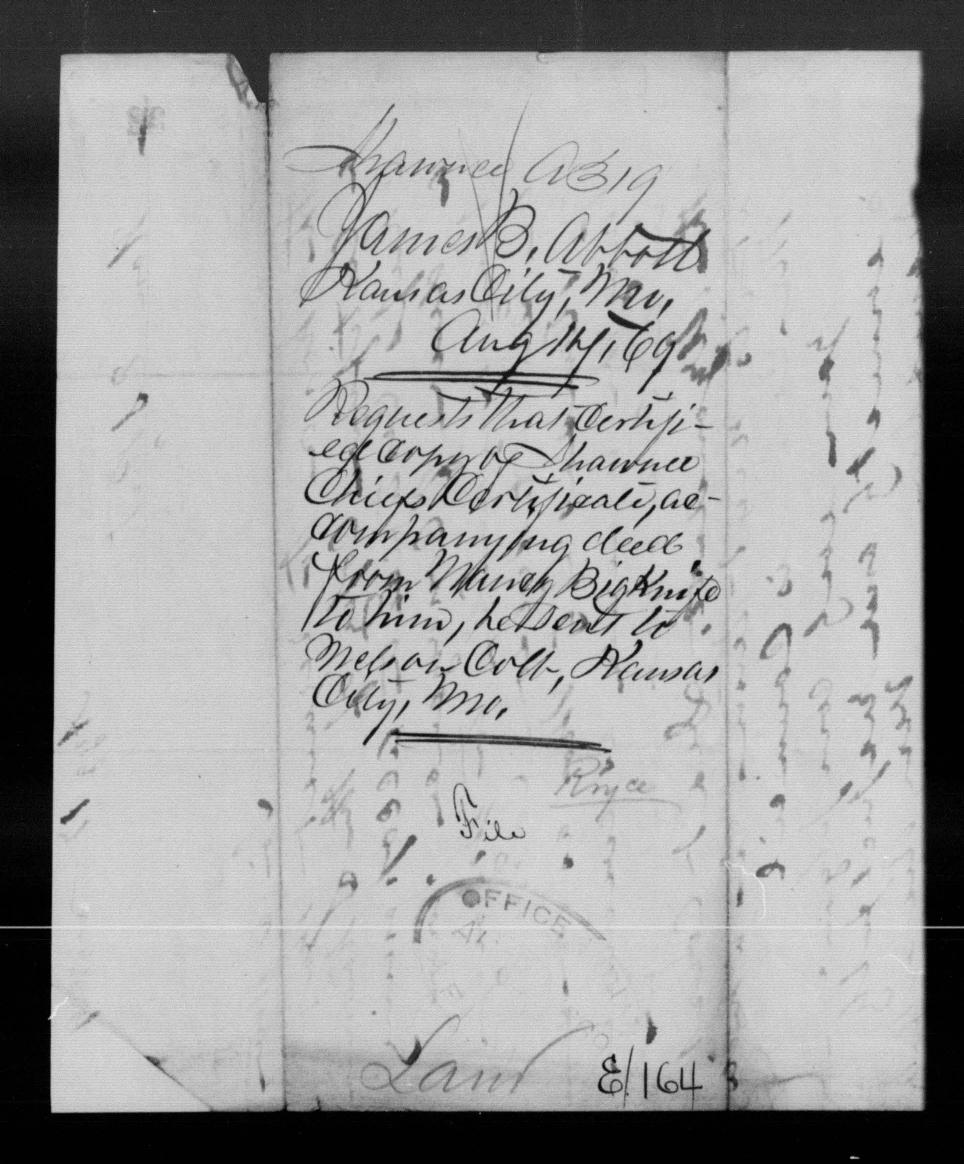 Shawnee A 319
James B. Abbott
Kansas City, Mo,
Aug 14, 69
Requests that Certifi-
ed copy of Shawnee
Chiefs Certificate, ac-
companying deed
from Nancy Big Knife
to him, be sent to
Nelson Colt, Kansas
City, Mo,
File
OFFICE
Land
E/164